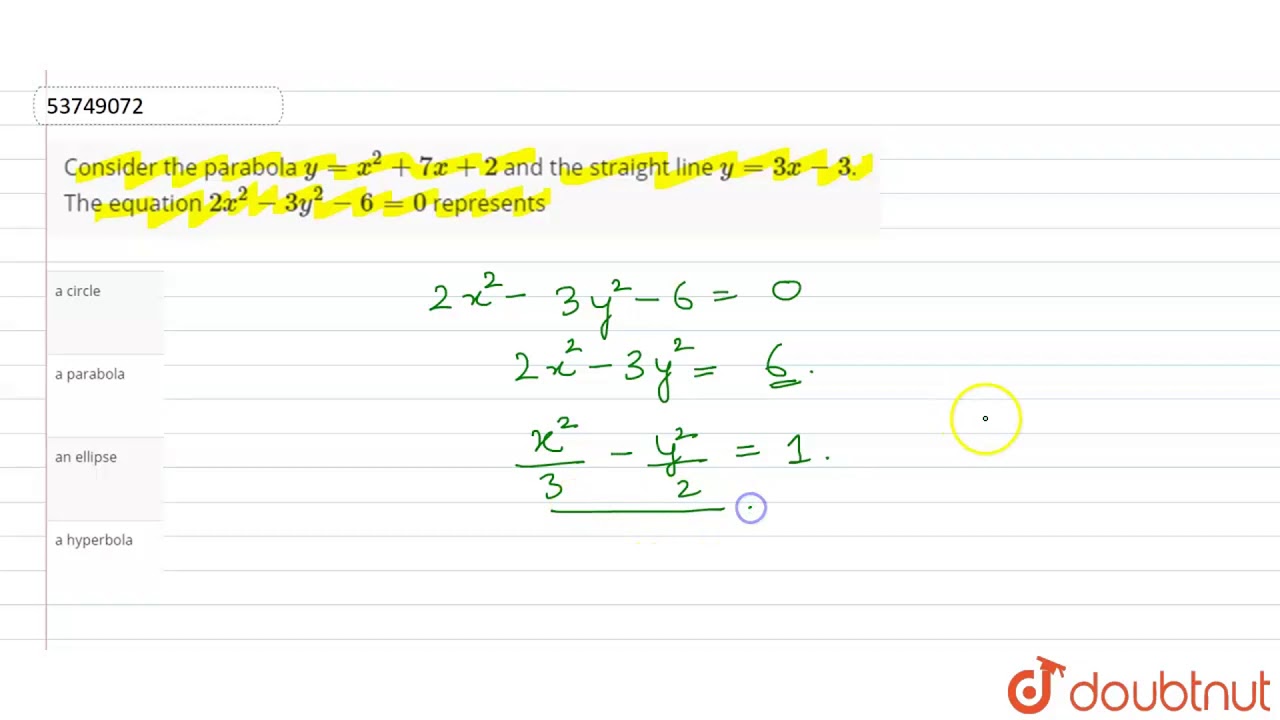 53749072
Consider the parabola y = x² + 7x + 2 and the straight line y = 3x − 3.
The equation 2x² − 3y² − 6 = 0 represents
a circle
a parabola
an ellipse
a hyperbola
2x² − 3y² − 6 = 0
2x² − 3y² = 6.
x²/3 − y²/2 = 1.
doubtnut